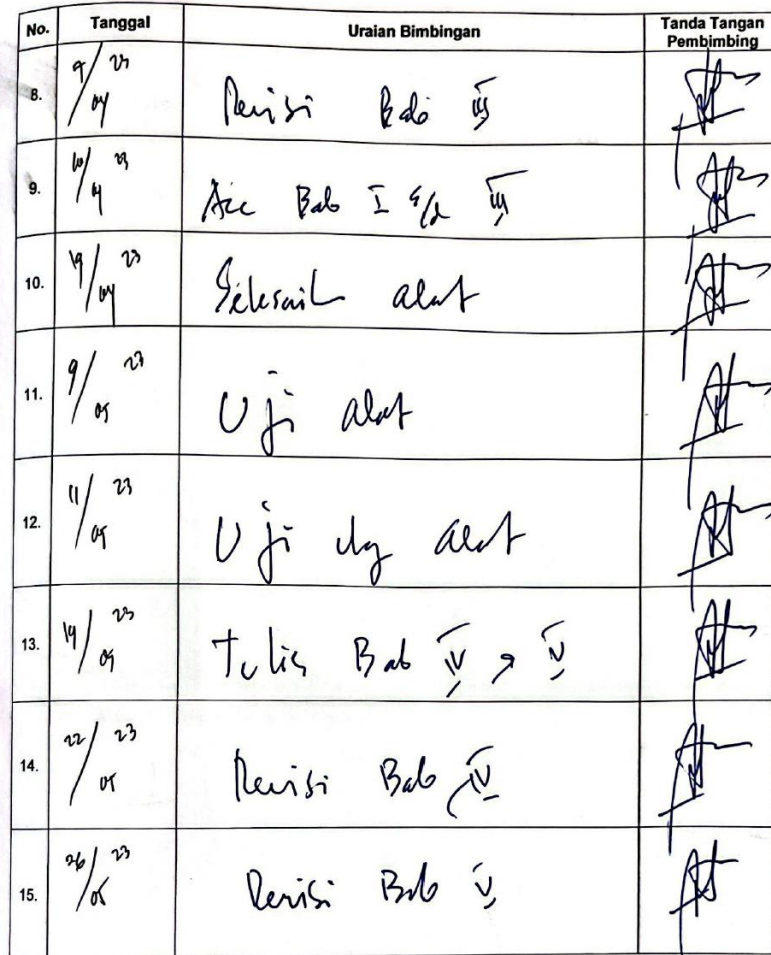 No. Tanggal Uraian Bimbingan Tanda Tangan Pembimbing
8. 9/04 23 Revisi Bab III
9. 10/4 23 Acc Bab I s/d III
10. 19/04 23 alat
11. 9/05 23 Uji alat
12. 11/05 23 Uji alat
13. 19/05 23 Tulis Bab IV V
14. 22/05 23 Revisi Bab IV
15. 26/05 23 Revisi Bab V